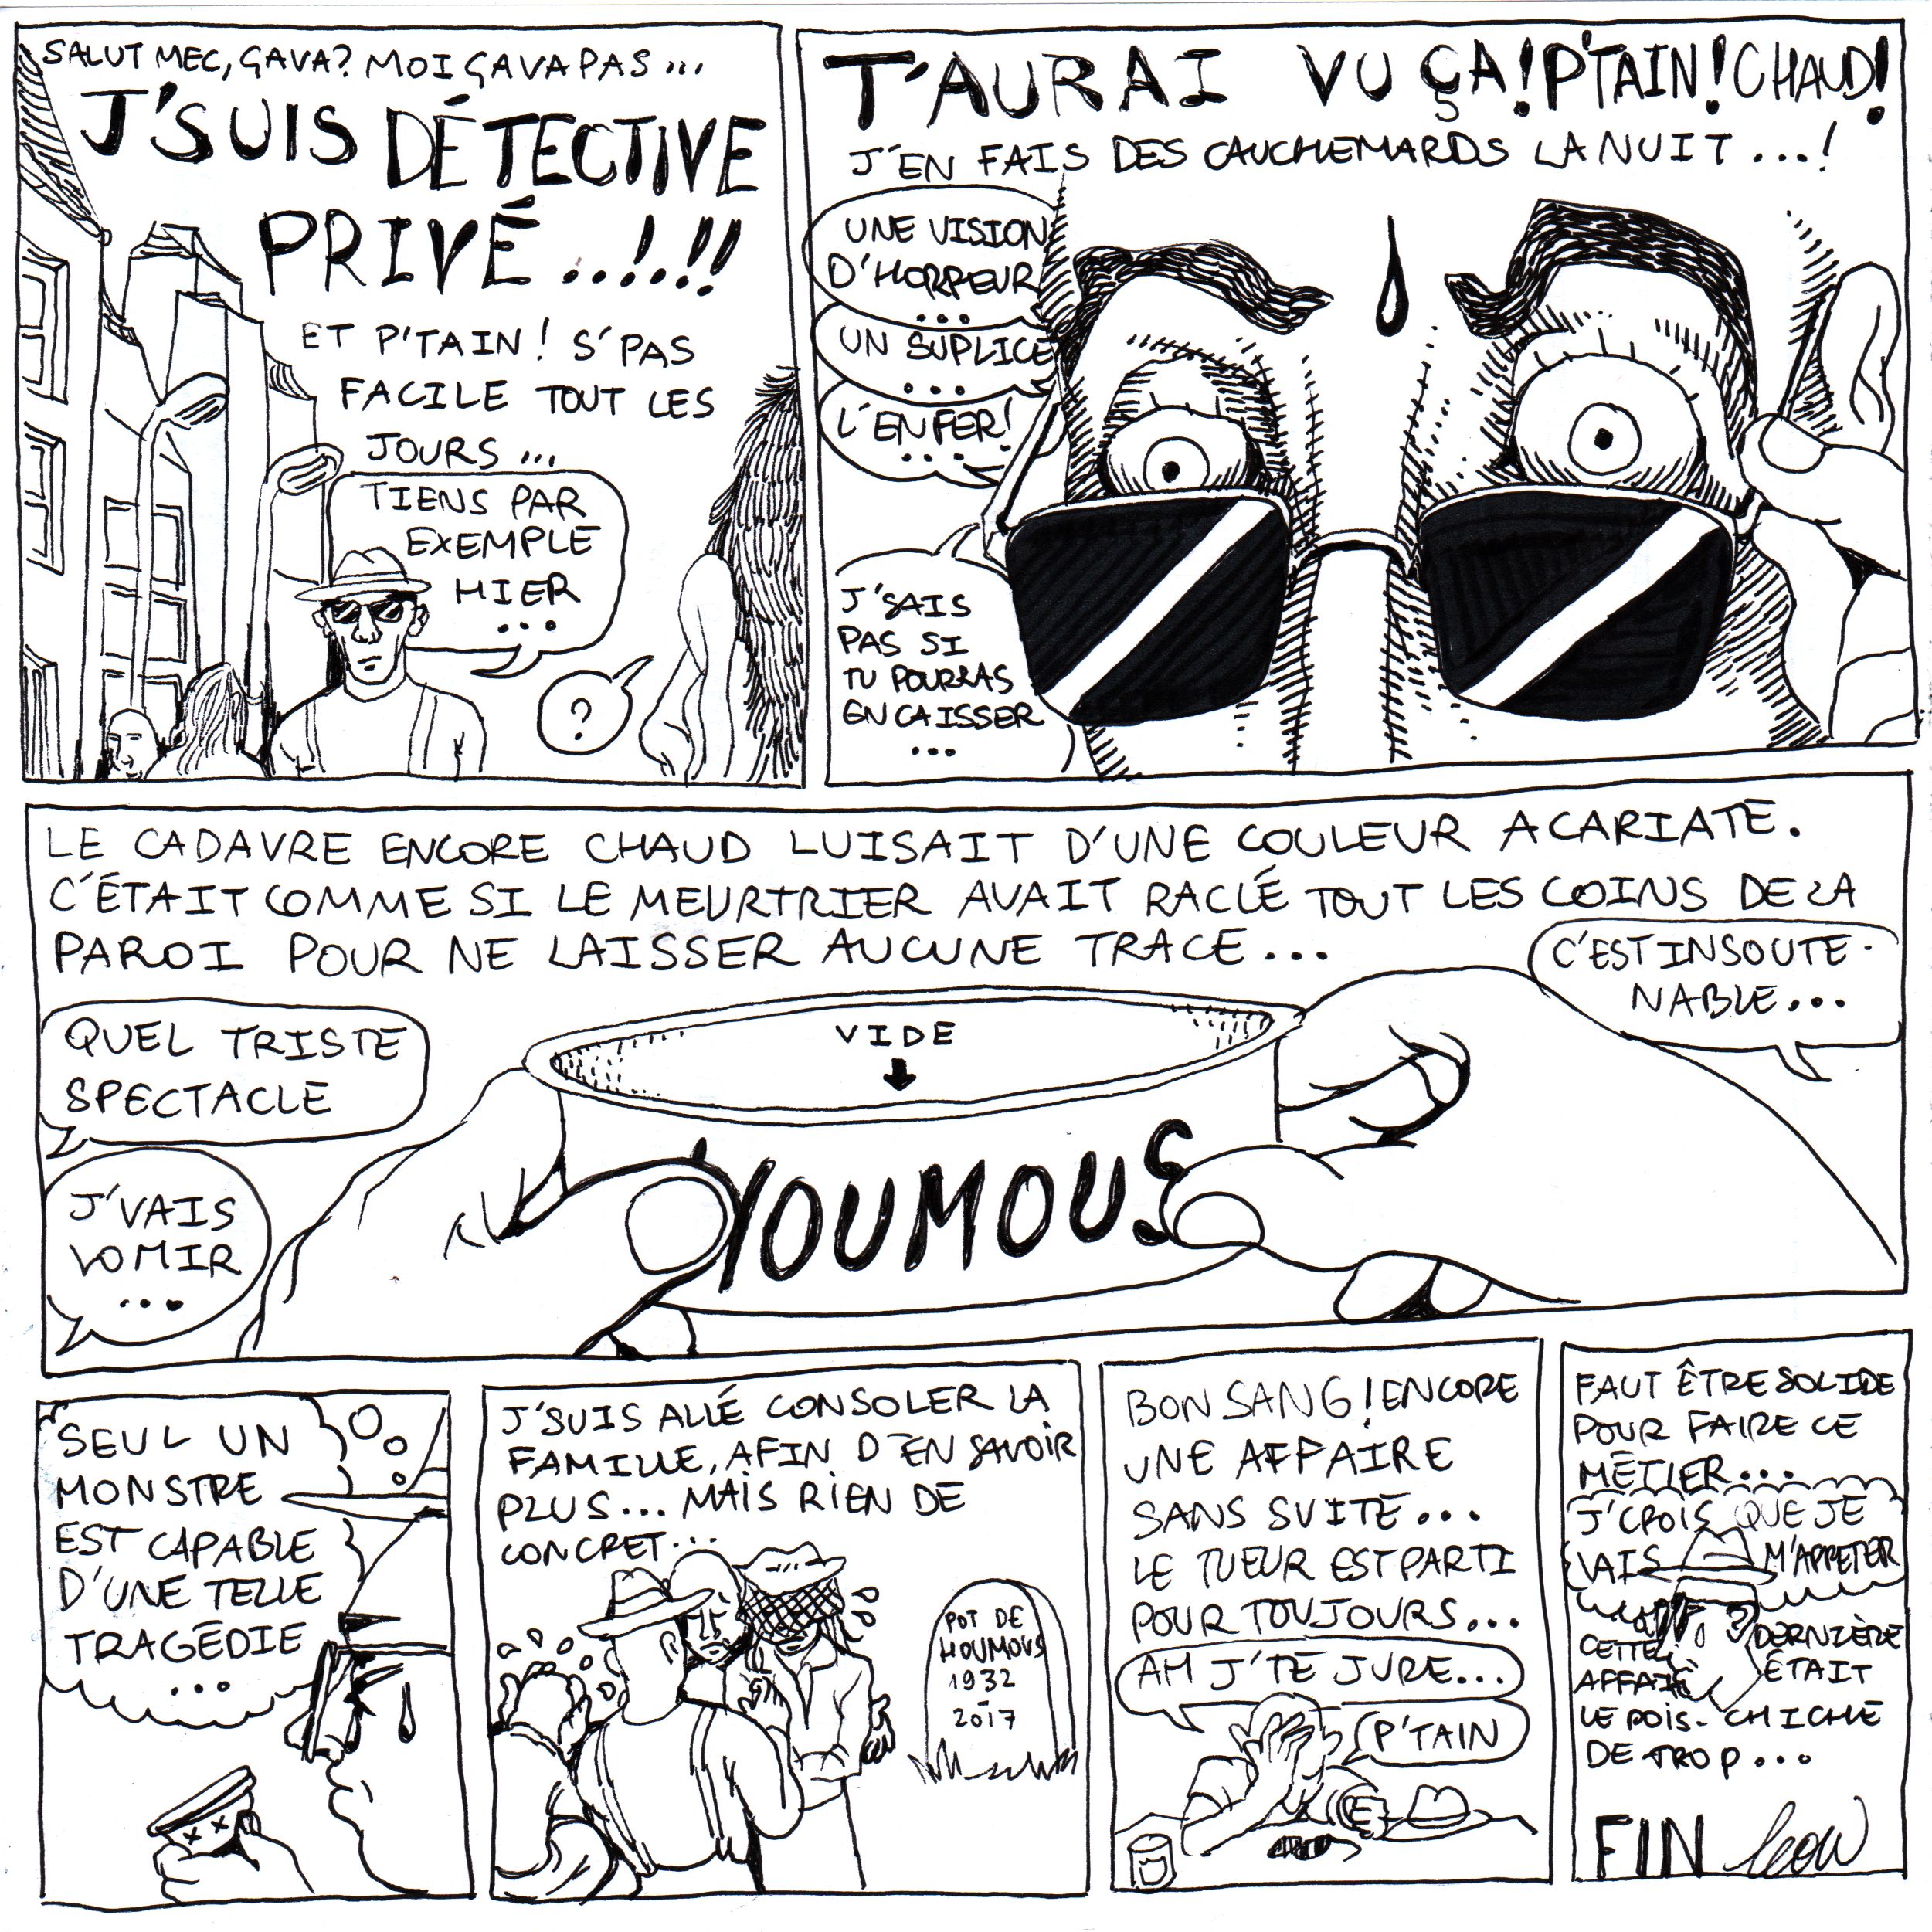 SALUT MEC, ÇAVA? MOI ÇAVAPAS...
J'SUIS DÉTECTIVE
PRIVÉ..!..!!
ET P'TAIN! S'PAS
FACILE TOUT LES
JOURS...
TIENS PAR
EXEMPLE
HIER
...
?
T'AURAI VU ÇA! P'TAIN! CHAUD!
J'EN FAIS DES CAUCHEMARDS LA NUIT...!
UNE VISION
D'HORREUR
...
UN SUPLICE
...
L'ENFER!
...
J'SAIS
PAS SI
TU POURRAS
ENCAISSER
...
LE CADAVRE ENCORE CHAUD LUISAIT D'UNE COULEUR ACARIATE.
C'ÉTAIT COMME SI LE MEURTRIER AVAIT RACLÉ TOUT LES COINS DE LA
PAROI POUR NE LAISSER AUCUNE TRACE...
C'EST INSOUTE-
NABLE...
QUEL TRISTE
SPECTACLE
VIDE
J'VAIS
VOMIR
...
HOUMOUS
SEUL UN
MONSTRE
EST CAPABLE
D'UNE TELLE
TRAGÉDIE
...
J'SUIS ALLÉ CONSOLER LA
FAMILLE, AFIN D'EN SAVOIR
PLUS... MAIS RIEN DE
CONCRET...
POT DE
HOUMOUS
1932
-
2017
BON SANG! ENCORE
UNE AFFAIRE
SANS SUITE...
LE TUEUR EST PARTI
POUR TOUJOURS...
AH J'TE JURE...
P'TAIN
FAUT ÊTRE SOLIDE
POUR FAIRE CE
MÉTIER...
J'CROIS QUE JE
VAIS M'ARRETER
CETTE DERNIÈRE
AFFAIRE ÉTAIT
LE POIS-CHICHE
DE TROP...
FIN